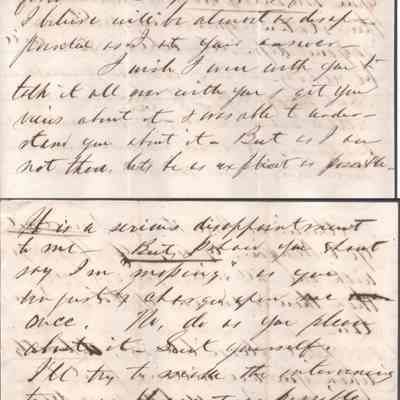 I believe will be almost as disap-
pointed as I at your answer-
I wish I were with you to
talk it all over with you & get your
views about it - & was able to under-
stand you about it - But as I am
not there, let's be as explicit as possible-
It is a serious disappointment
to me - But, I know you shant
say I'm "moping," as you
unjustly charged upon me
once. No, do as you please
about it - Suit yourself.
I'll try to the intervening